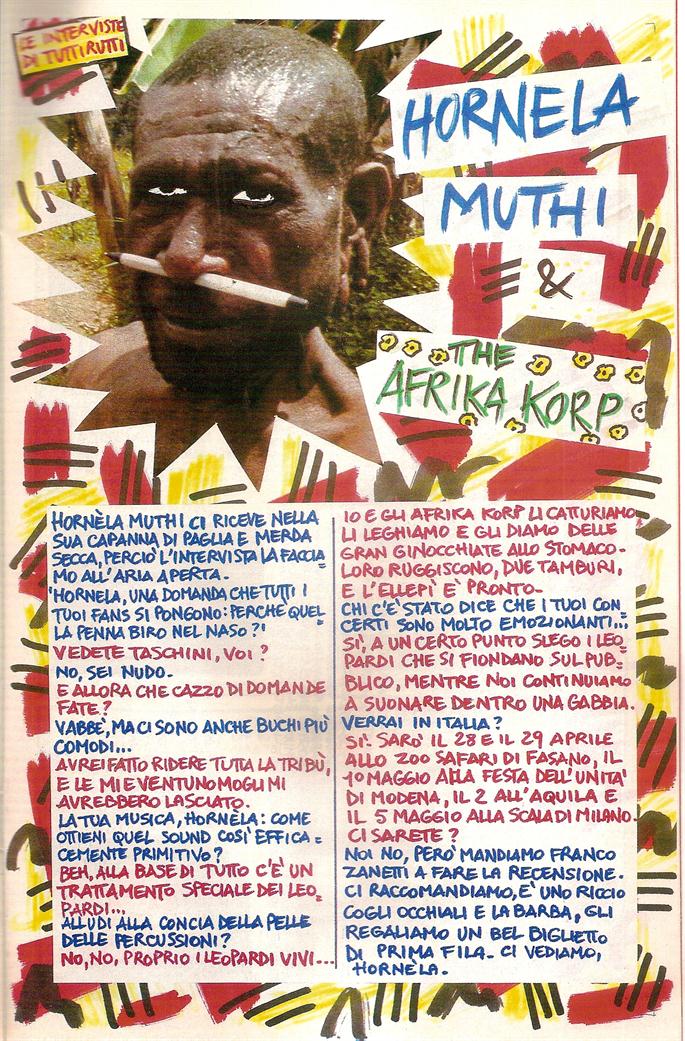 LE INTERVISTE
DI TUTTIRUTTI
HORNELA
MUTHI
&
THE
AFRIKA KORP
HORNÈLA MUTHI CI RICEVE NELLA
SUA CAPANNA DI PAGLIA E MERDA
SECCA, PERCIÒ L'INTERVISTA LA FACCIA=
MO ALL'ARIA APERTA.
'HORNELA, UNA DOMANDA CHE TUTTI I
TUOI FANS SI PONGONO: PERCHÈ QUEL=
LA PENNA BIRO NEL NASO?'
VEDETE TASCHINI, VOI?
NO, SEI NUDO.
E ALLORA CHE CAZZO DI DOMANDE
FATE?
VABBÈ, MA CI SONO ANCHE BUCHI PIÙ
COMODI...
AVREI FATTO RIDERE TUTTA LA TRIBÙ,
E LE MIE VENTUNO MOGLI MI
AVREBBERO LASCIATO.
LA TUA MUSICA, HORNÈLA: COME
OTTIENI QUEL SOUND COSÌ EFFICA=
CEMENTE PRIMITIVO?
BEH, ALLA BASE DI TUTTO C'È UN
TRATTAMENTO SPECIALE DEI LEO=
PARDI...
ALLUDI ALLA CONCIA DELLA PELLE
DELLE PERCUSSIONI?
NO, NO, PROPRIO I LEOPARDI VIVI...
IO E GLI AFRIKA KORP LI CATTURIAMO,
LI LEGHIAMO E GLI DIAMO DELLE
GRAN GINOCCHIATE ALLO STOMACO.
LORO RUGGISCONO, DUE TAMBURI,
E L'ELLEPÌ È PRONTO.
CHI C'È STATO DICE CHE I TUOI CON=
CERTI SONO MOLTO EMOZIONANTI...
SÌ, A UN CERTO PUNTO SLEGO I LEO=
PARDI CHE SI FIONDANO SUL PUB=
BLICO, MENTRE NOI CONTINUIAMO
A SUONARE DENTRO UNA GABBIA.
VERRAI IN ITALIA?
SÌ. SARÒ IL 28 E IL 29 APRILE
ALLO ZOO SAFARI DI FASANO, IL
1º MAGGIO ALLA FESTA DELL'UNITA'
DI MODENA, IL 2 ALL'AQUILA E
IL 5 MAGGIO ALLA SCALA DI MILANO.
CI SARETE?
NOI NO, PERÒ MANDIAMO FRANCO
ZANETTI A FARE LA RECENSIONE.
CI RACCOMANDIAMO, È UNO RICCIO
COGLI OCCHIALI E LA BARBA, GLI
REGALIAMO UN BEL BIGLIETTO
DI PRIMA FILA. CI VEDIAMO,
HORNÈLA.